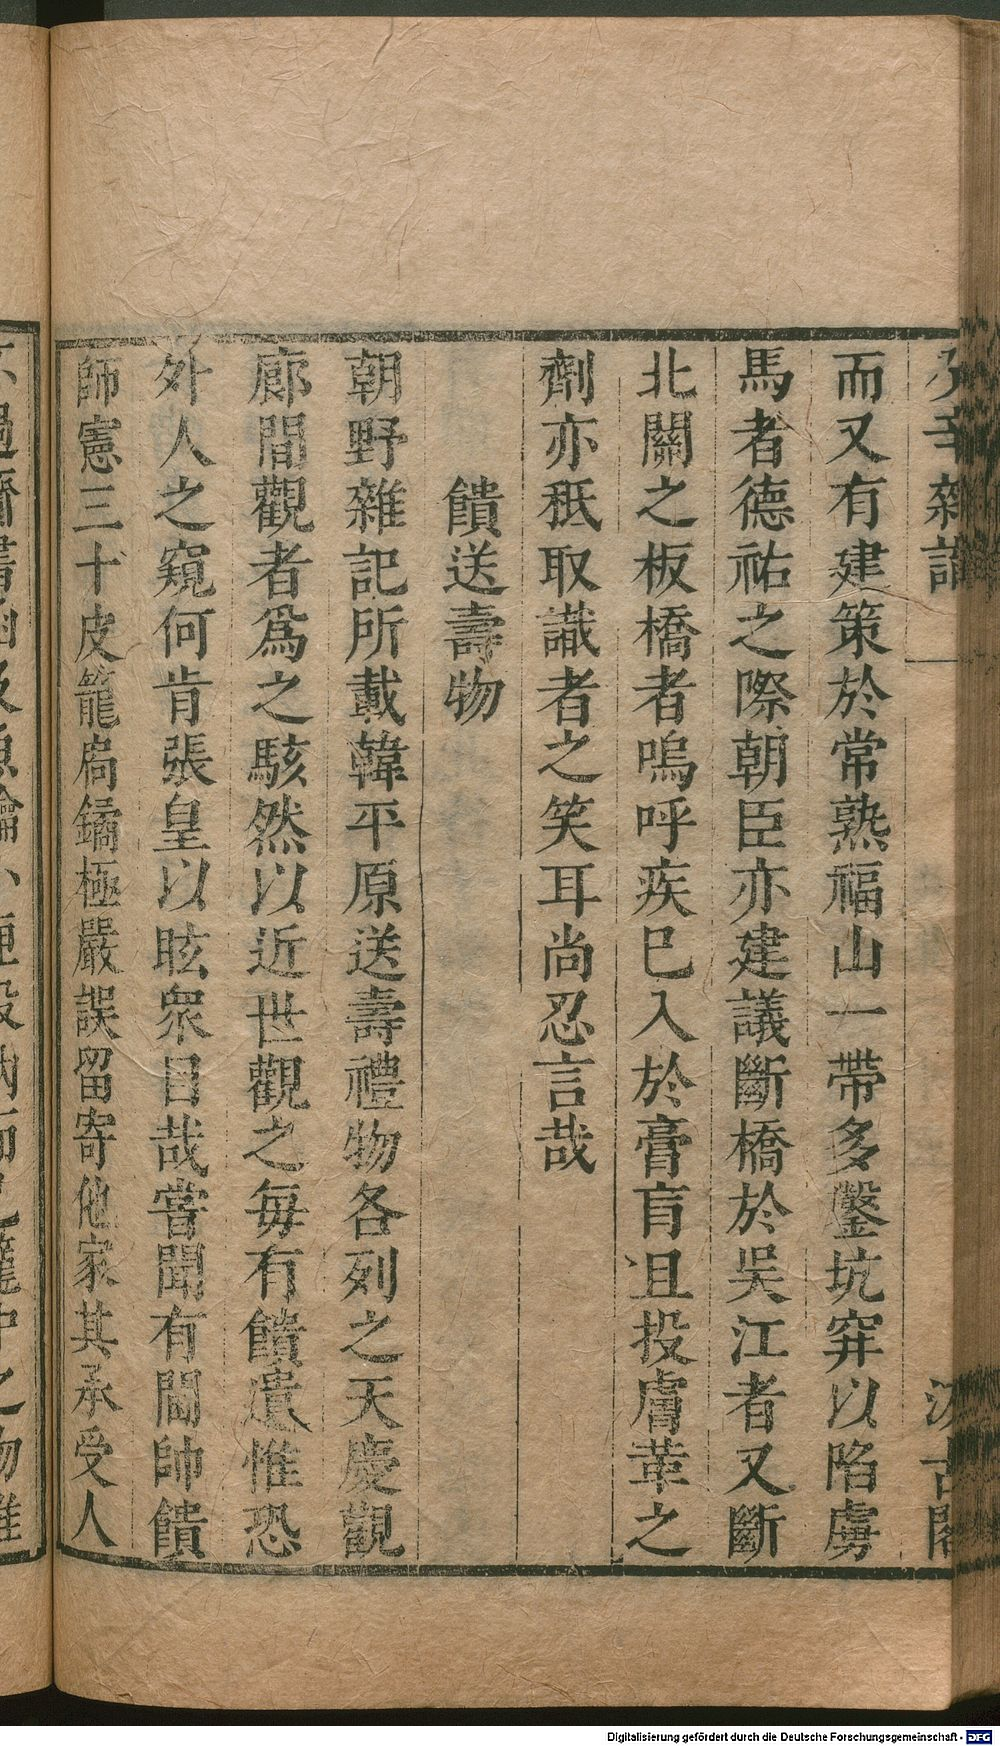 辛雜識
汲古閣
而又有建策於常熟福山一帶多鑿坑穽以陷虜
馬者德祐之際朝臣亦建議斷橋於吳江者又斷
北關之板橋者嗚呼疾巳入於膏肓且投膚革之
劑亦秖取識者之笑耳尚忍言哉
饋送壽物
朝野雜記所載韓平原送壽禮物各列之天慶觀
廊間觀者爲之駭然以近世觀之每有饋遺惟恐
外人之窺何肯張皇以眩衆目哉嘗聞有閫帥饋
師憲三十皮籠扃鐍極嚴誤留寄他家其承受人
Digitalisierung gefördert durch die Deutsche Forschungsgemeinschaft - DFG